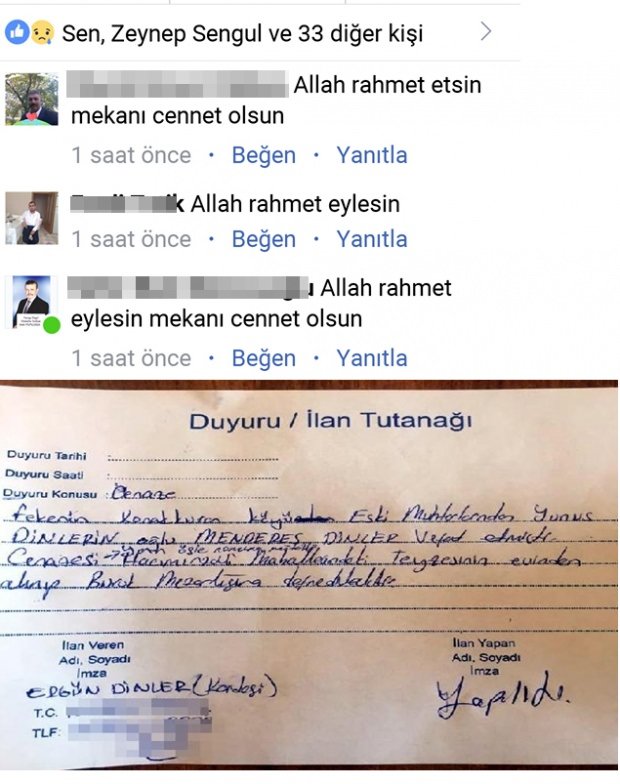 Sen, Zeynep Sengul ve 33 diğer kişi
Allah rahmet etsin
mekanı cennet olsun
1 saat önce · Beğen · Yanıtla
Allah rahmet eylesin
1 saat önce · Beğen · Yanıtla
Allah rahmet
eylesin mekanı cennet olsun
1 saat önce · Beğen · Yanıtla
Duyuru / İlan Tutanağı
Duyuru Tarihi :
Duyuru Saati :
Duyuru Konusu : Cenaze
Fekenin Konakkuran köyünden Eski Muhtarlarından Yunus
DİNLERİN oğlu MENDERES DİNLER Vefat etmiştir
yarın öğle namazı
Cenazesi Mahallesindeki Teyzesinin evinden
alınıp Buruk Mezarlığına defnedilecektir
İlan Veren
Adı, Soyadı
İmza
İlan Yapan
Adı, Soyadı
İmza
ERGÜN DİNLER (Kardeşi)
Yapıldı.
T.C.
TLF: